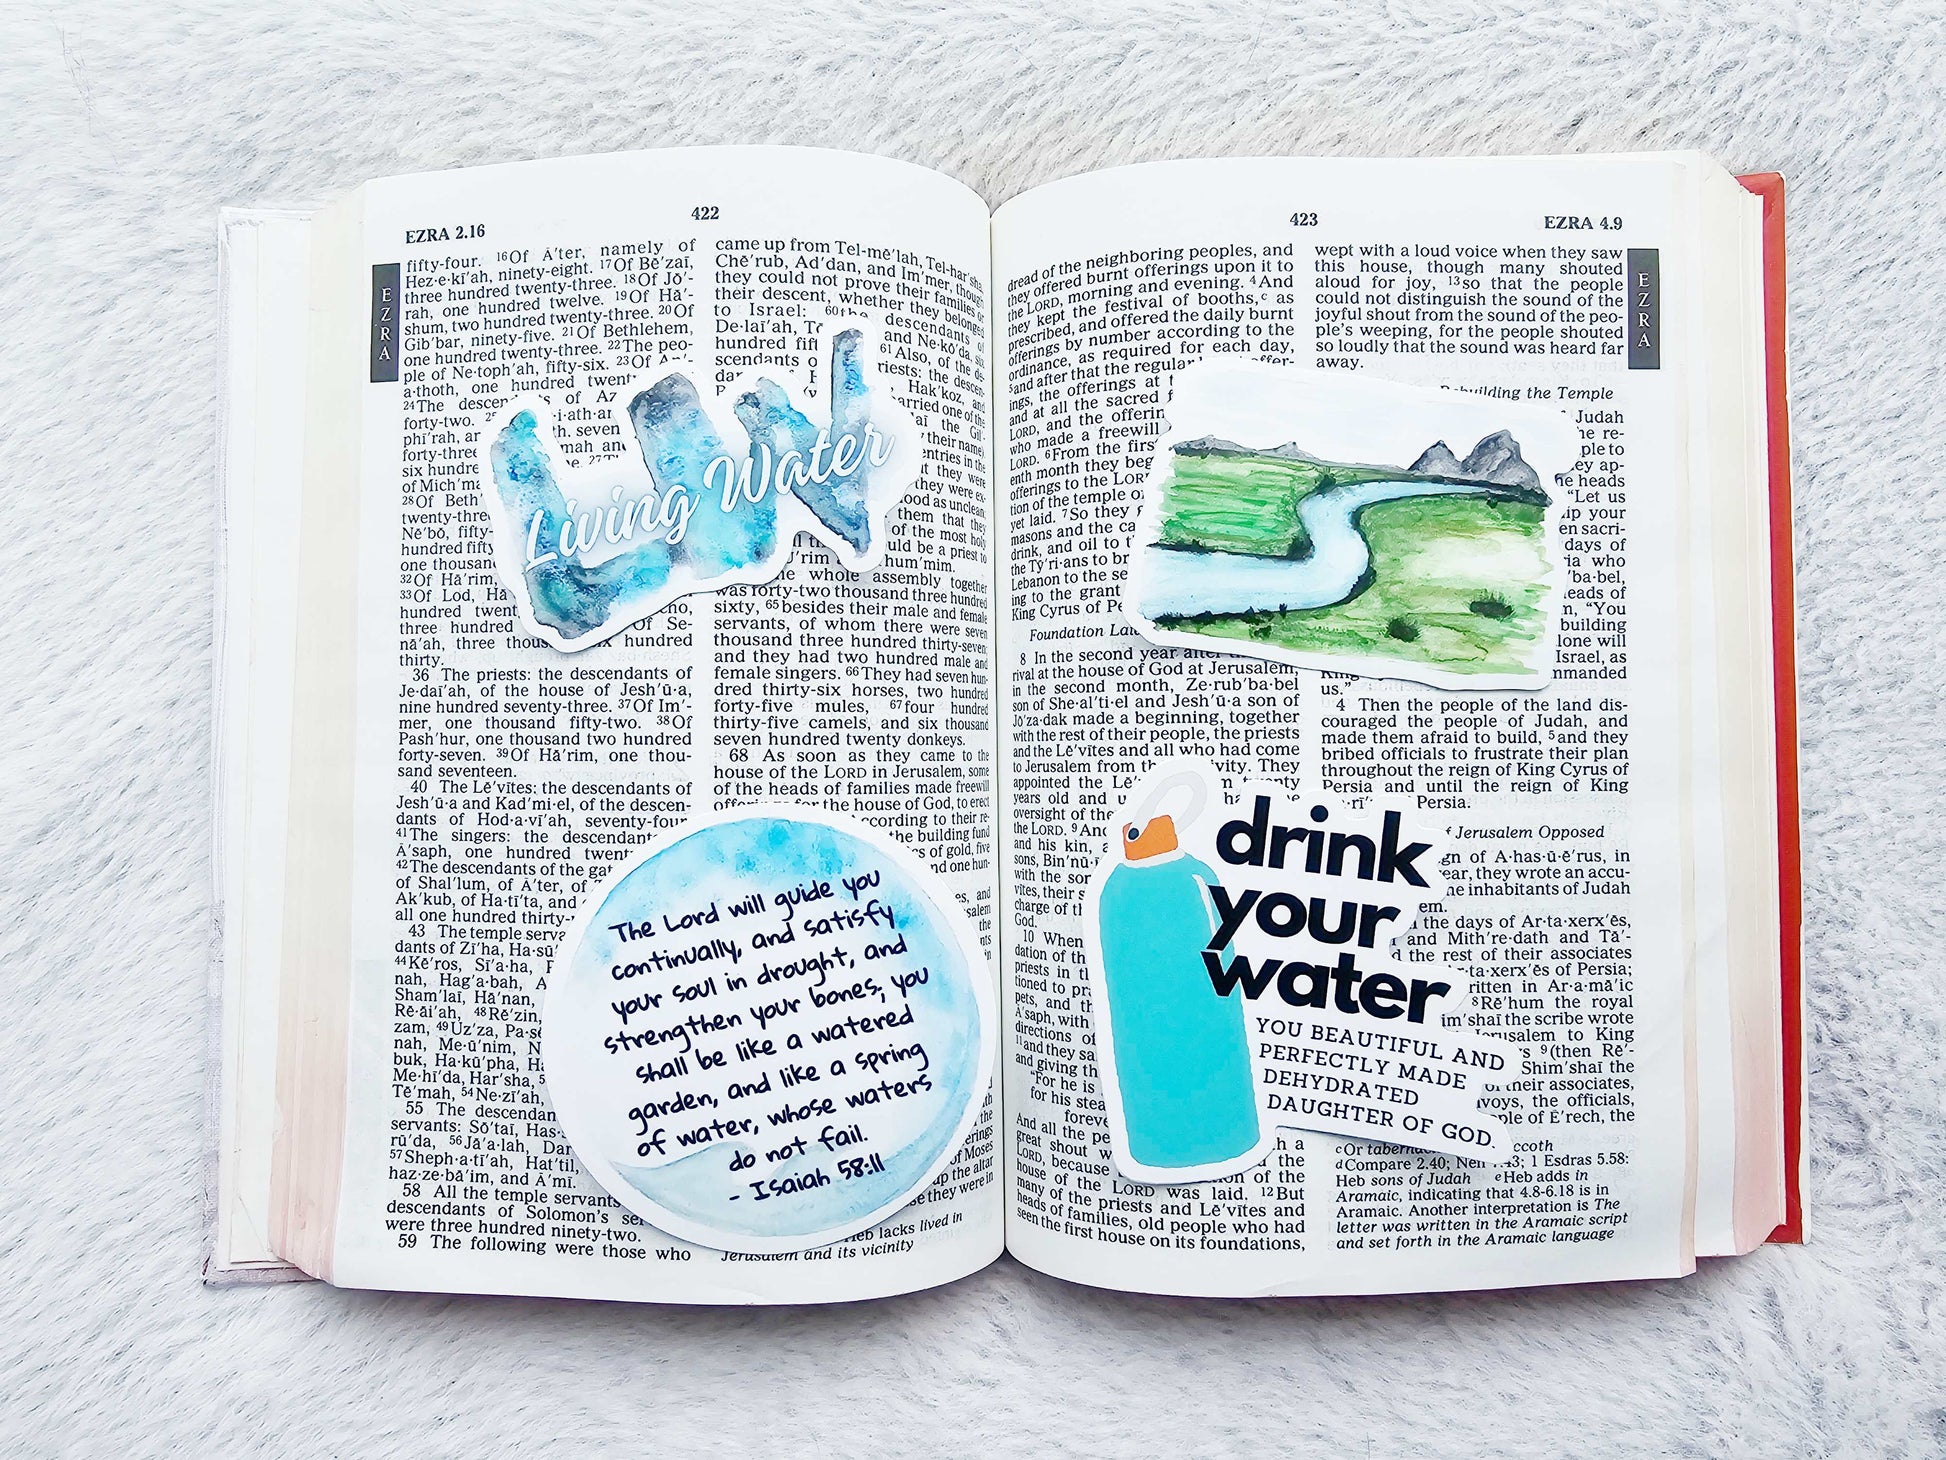 EZRA 2.16
422
EZRA
fifty-four. 16Of Ā′ter, namely of
Hez·e·kī′ah, ninety-eight. 17Of Bē′zaī,
three hundred twenty-three. 18Of Jō′-
rah, one hundred twelve. 19Of Hā′-
shum, two hundred twenty-three. 20Of
Gib′bar, ninety-five. 21Of Bethlehem,
one hundred twenty-three. 22The peo-
ple of Ne·toph′ah, fifty-six. 23Of An′-
a·thoth, one hundred
24The
forty-two.
phī′rah,
forty-three
six
of
28Of
twenty-three
Nē′bō, fifty-
hundred fifty
one thousand
32Of Hā′rim,
33Of Lod,
hundred
three hundred Of Se-
nā′ah, three hundred
thirty.
36 The priests: the descendants of
Je·daī′ah, of the house of Jesh′ū·a,
nine hundred seventy-three. 37Of Im′-
mer, one thousand fifty-two. 38Of
Pash′hur, one thousand two hundred
forty-seven. 39Of Hā′rim, one thou-
sand seventeen.
40 The Lē′vītes: the descendants of
Jesh′ū·a and Kad′mi·el, of the descen-
dants of Hod·a·vī′ah, seventy-four
41The singers: the
Ā′saph, one hundred
42The descendants of the
of Shal′lum, of Ā′ter, of
Ak′kub, of Ha·tī′ta, and
all one hundred thirty-
43 The temple
dants of Zī′ha,
44Kē′ros, Sī′a·ha,
nah, Hag′a·bah,
Sham′laī, Hā′nan,
Rē·āi′ah, 48Rē′zin,
zam, 49Uz′za,
nah, Me·ū′nim,
buk, Ha·kū′pha,
Me·hī′da, Har′sha,
Tē′mah, 54Ne·zī′ah,
55 The
servants: Sō′taī,
rū′da, 56Jā′a·lah,
57Sheph·a·tī′ah, Hat′til,
haz·ze·bā′im, and Ā′mī.
58 All the temple servants
descendants of Solomon's
were three hundred ninety-two.
59 The following were those who
came up from Tel-mē′lah, Tel-har′sha,
Chē′rub, Ad′dan, and Im′mer, though
they could not prove their families or
their descent, whether they belonged
to Israel: 60the descendants of
De·laī′ah, and Ne·kō′da, six
hundred
61Also, of the de-
Hak′koz, and
one of the
the Gil′-
their name).
entries in the
they were ex-
as unclean;
them that they
of the most holy
be a priest to
hum′mim.
whole assembly together
was forty-two thousand three hundred
sixty, 65besides their male and female
servants, of whom there were seven
thousand three hundred thirty-seven;
and they had two hundred male and
female singers. 66They had seven hun-
dred thirty-six horses, two hundred
forty-five mules, 67four hundred
thirty-five camels, and six thousand
seven hundred twenty donkeys.
68 As soon as they came to the
house of the LORD in Jerusalem, some
of the heads of families made freewill
the house of God, to erect
to their re-
the building fund
of gold, five
one hun-
of Moses
up the altar
they were in
Heb lacks lived in
Jerusalem and its vicinity
Living Water
The Lord will guide you
continually, and satisfy
your soul in drought, and
strengthen your bones; you
shall be like a watered
garden, and like a spring
of water, whose waters
do not fail.
- Isaiah 58:11
423
EZRA 4.9
EZRA
dread of the neighboring peoples, and
they offered burnt offerings upon it to
the LORD, morning and evening. 4And
they kept the festival of booths,c as
prescribed, and offered the daily burnt
offerings by number according to the
ordinance, as required for each day,
5and after that the regular
ings, the offerings at
and at all the sacred
LORD, and the
who made a freewill
LORD. 6From the first
enth month they
offerings to the LORD
tion of the temple of
yet laid. 7So they
masons and the
drink, and oil to
the Tȳ′ri·ans to
Lebanon to the
ing to the grant
King Cyrus of
Foundation
8 In the second year after
rival at the house of God at Jerusalem,
in the second month, Ze·rub′ba·bel
son of She·al′ti·el and Jesh′ū·a son of
Jō′za·dak made a beginning, together
with the rest of their people, the priests
and the Lē′vītes and all who had come
to Jerusalem from They
appointed the
years old and
oversight of the
the LORD. 9And
and his kin,
sons,
with the
vites, their
charge of
God.
10 When
dation of
priests in
tioned to
pets, and
Ā′saph, with
directions of
11and they
and giving
"For he is
for his
forever
And all the
great shout
LORD, because the
house of the LORD was laid. 12But
many of the priests and Lē′vītes and
heads of families, old people who had
seen the first house on its foundations,
wept with a loud voice when they saw
this house, though many shouted
aloud for joy, 13so that the people
could not distinguish the sound of the
joyful shout from the sound of the peo-
ple's weeping, for the people shouted
so loudly that the sound was heard far
away.
Rebuilding the Temple
Judah
heads
"Let us
your
days of
who
heads of
"You
building
will
Israel, as
us."
4 Then the people of the land dis-
couraged the people of Judah, and
made them afraid to build, 5and they
bribed officials to frustrate their plan
throughout the reign of King Cyrus of
Persia and until the reign of King
Persia.
of Jerusalem Opposed
of A·has·ū·ē′rus, in
they wrote an accu-
inhabitants of Judah
the days of Ar·ta·xerx′ēs,
and Mith′re·dath and Tā′-
the rest of their associates
of Persia;
in Ar·a·mā′ic
8Rē′hum the royal
the scribe wrote
to King
9(then Rē′-
Shim′shaī the
their associates,
the officials,
of Ē′rech, the
cOr
dCompare 2.40; 1 Esdras 5.58:
Heb sons of Judah eHeb adds in
Aramaic, indicating that 4.8-6.18 is in
Aramaic. Another interpretation is The
letter was written in the Aramaic script
and set forth in the Aramaic language
drink
your
water
YOU BEAUTIFUL AND
PERFECTLY MADE
DEHYDRATED
DAUGHTER OF GOD.